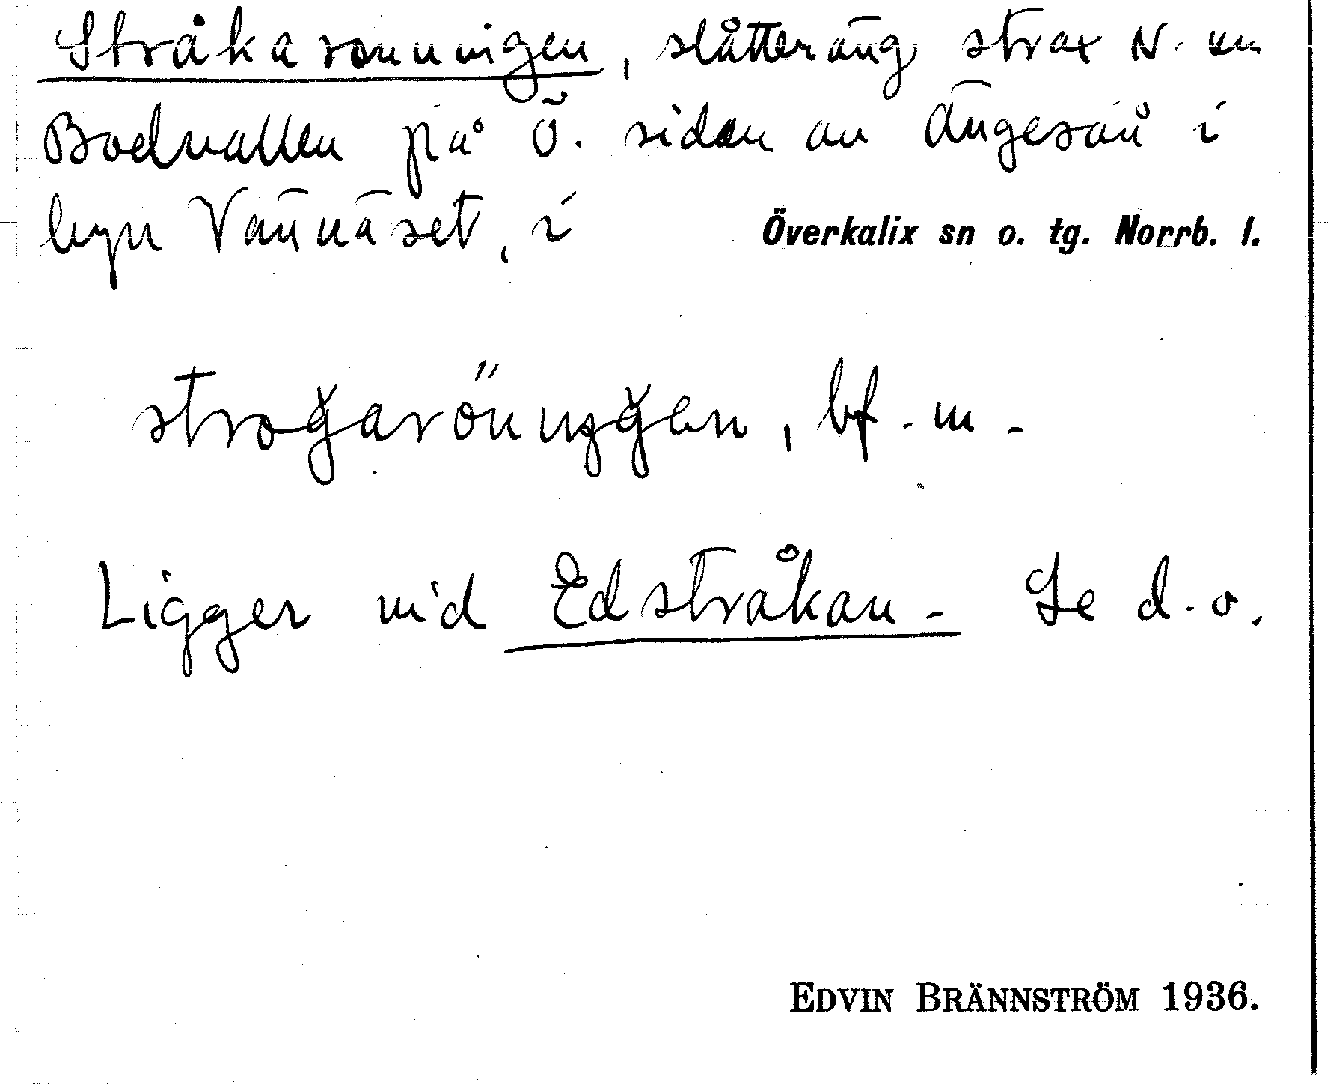 Stråkaronningen, slåtteräng strax N. om
Bodvallen på Ö. sidan av Ängesån i
byn Vännäset, i Överkalix sn o. tg. Norrb. l.
strogaröningen, bf. m.
Ligger vid Edstråkan. Se d. o.
EDVIN BRÄNNSTRÖM 1936.